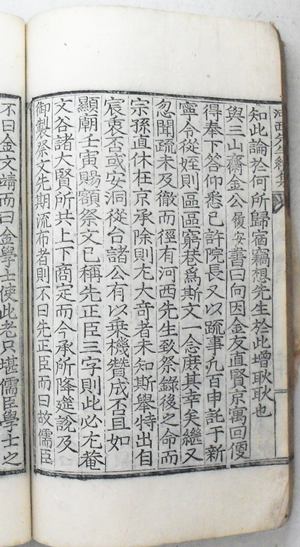 知此論於何所歸宿竊想先生於此增耿耿也
與三山齋金公履安書曰向因金友直賢京寓回便
得奉下答仰悉已許院長又以疏事九百申託于新
寧令從姪則區區窮巷爲斯文一念庶其幸矣繼又
忽聞疏未及徹而徑有河西先生致祭錄後之命而
宗孫直休在京承除則尤大奇者未知斯舉特出自
宸衷否或安洞從台諸公有以乗機賛成否且如
顯廟壬寅賜額祭文已稱先正臣三字則此必尤菴
文谷諸大賢所共上下商定而今承所降進說及
御製祭文先期流布者則不曰先正臣而曰故儒臣
不曰金文靖而曰金學士使此老只堪儒臣學士之